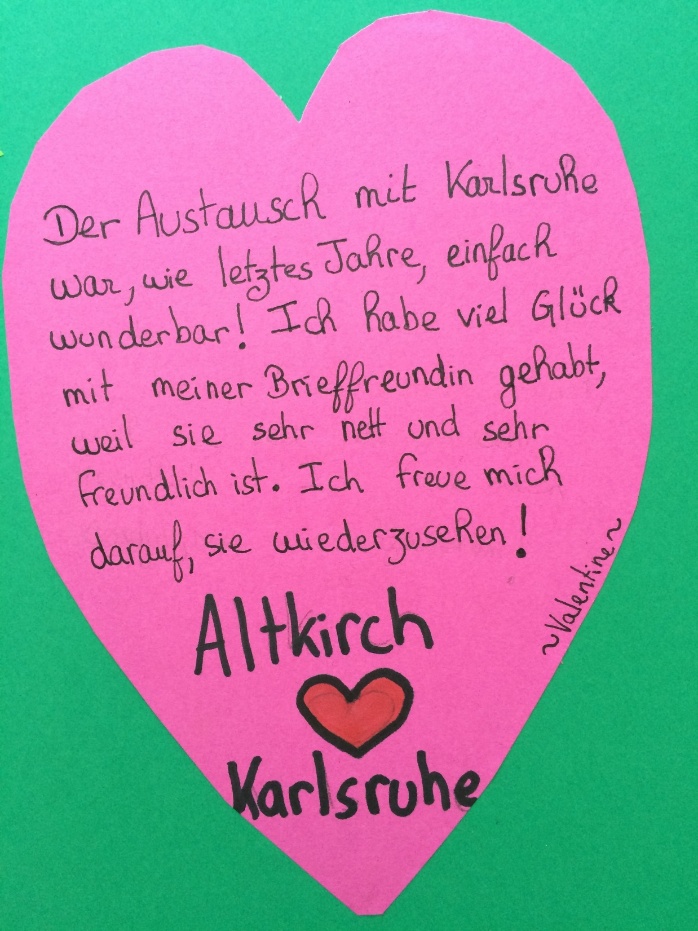 Der Austausch mit Karlsruhe
war, wie letztes Jahre, einfach
wunderbar! Ich habe viel Glück
mit meiner Brieffreundin gehabt,
weil sie sehr nett und sehr
freundlich ist. Ich freue mich
darauf, sie wiederzusehen!
~Valentine~
Altkirch
Karlsruhe